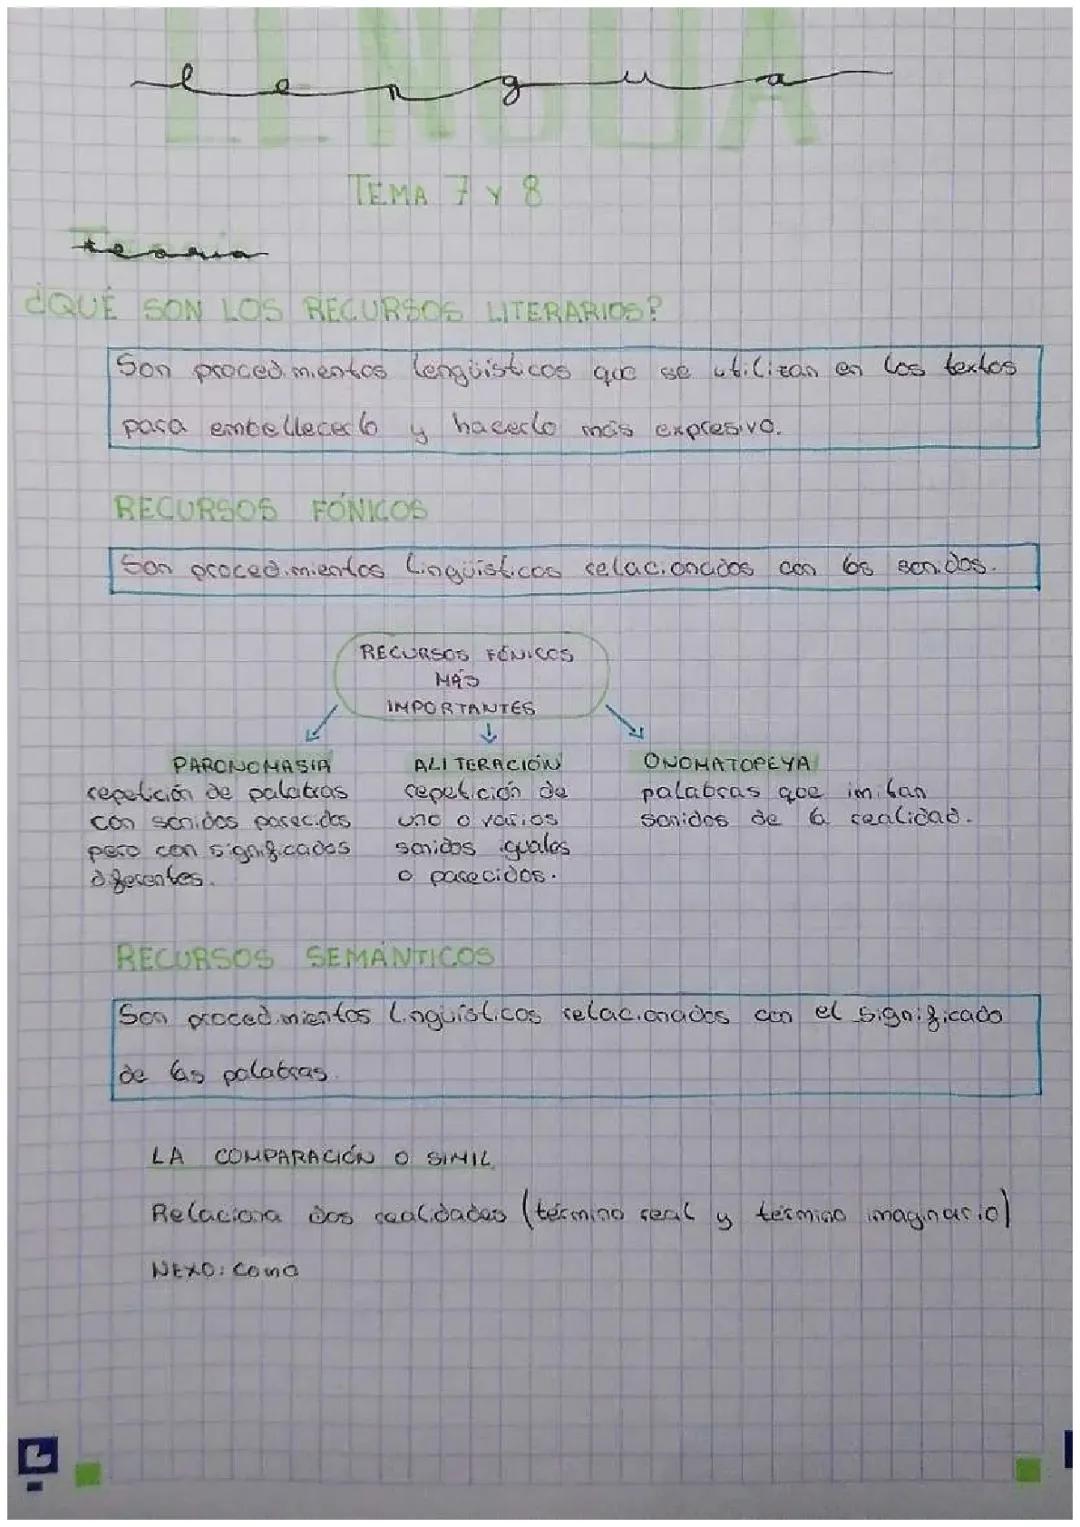 LENGUA
lengua
TEMA 7 Y 8
teoria
¿QUÉ SON LOS RECURSOS LITERARIOS?
Son procedimientos lengüísticos que se utilizan en los textos
para embellecerlo y hacerlo más expresivo.
RECURSOS FÓNICOS
Son procedimientos lingüísticos relacionados con los sonidos.
RECURSOS FÓNICOS
MÁS
IMPORTANTES
PARONOMASIA
repetición de palabras
con sonidos parecidos
pero con significados
diferentes.
ALITERACIÓN
repetición de
uno o varios
sonidos iguales
o parecidos.
ONOMATOPEYA
palabras que imitan
sonidos de la realidad.
RECURSOS SEMÁNTICOS
Son procedimientos lingüísticos relacionados con el significado
de las palabras.
LA COMPARACIÓN O SIMIL
Relaciona dos realidades (término real y término imaginario)
NEXO: como